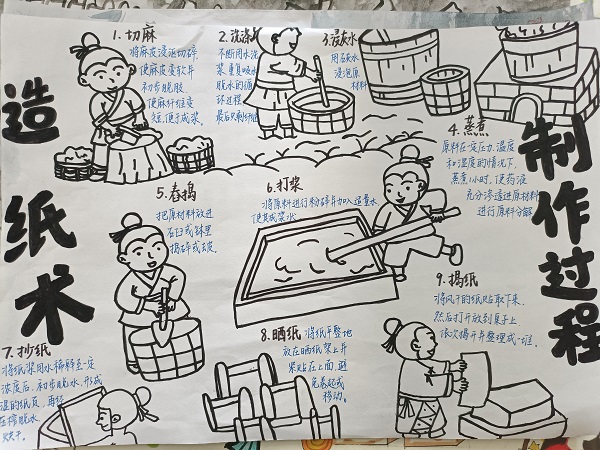 造纸术
制作过程
1.切麻
将麻皮浸泡切碎,
使麻皮变软并
初步脱胶
使麻纤维变
短,便于成浆。
2.洗涤
不断用水洗
最后只剩纤维
3.浸灰水
用石灰水
浸泡原
材料
4.蒸煮
原料在一定压力,温度
和湿度的情况下,
蒸煮1小时,使药液
充分渗透进原材料
进行原料分解
5.舂捣
把原材料放进
石臼或钵里
捣碎或去皮。
6.打浆
将原料进行粉碎并加入适量水
使其成浆状
7.抄纸
将纸浆用水稀释至一定
浓度后,初步脱水,形成
湿的纸页,再经
压榨脱水,
烘干。
8.晒纸
将纸平整地
放在晒纸架上并
紧贴在上面,避
免卷起或
移动。
9.揭纸
将风干的纸贴取下来,
然后打开放到桌子上
依次揭开并整理成一堆。